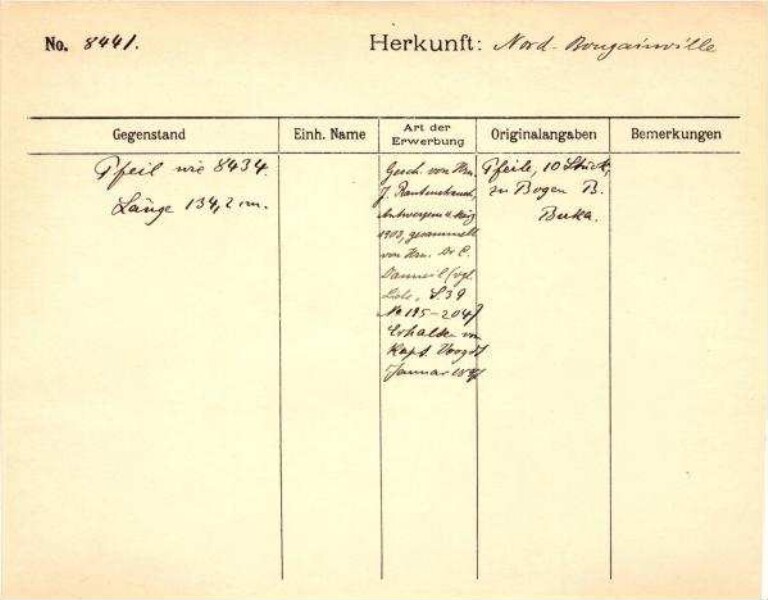 No. 8441.
Herkunft: Nord-Bougainville
Gegenstand
Einh. Name
Art der
Erwerbung
Originalangaben
Bemerkungen
Pfeil wie 8434.
Länge 134,2 cm.
Gesch. von Hrn.
J. Rautenstrauch,
Antwerpen
1903, gesammelt
von Hrn. Dr C.
Danneil (vgl.
Liste, S. 39
No 195-204)
Erhalten von
Kapt. Voogdt
Januar
Pfeile, 10 Stück,
zu Bogen B.
Buka.